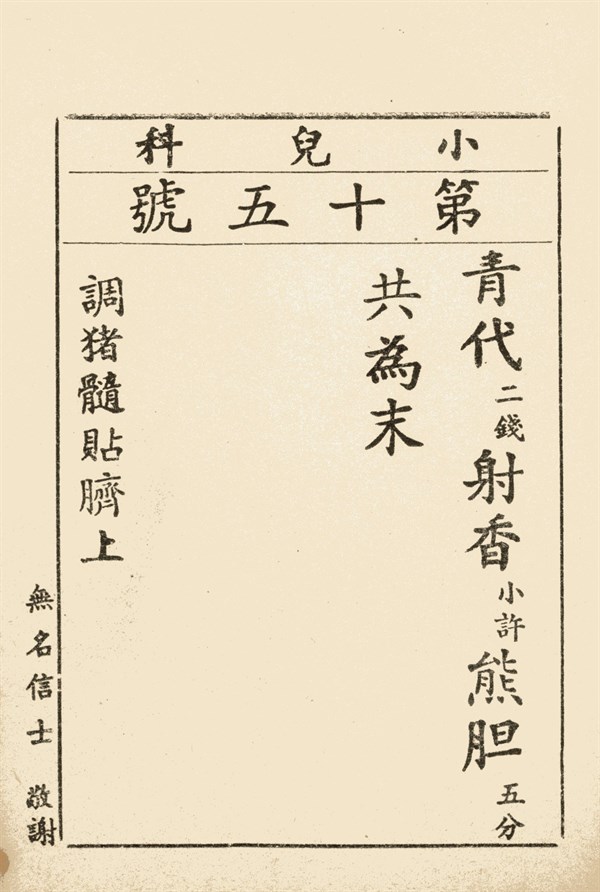 小兒科
第十五號
青代二錢射香小許熊胆五分
共為末
調猪髓貼臍上
無名信士敬謝